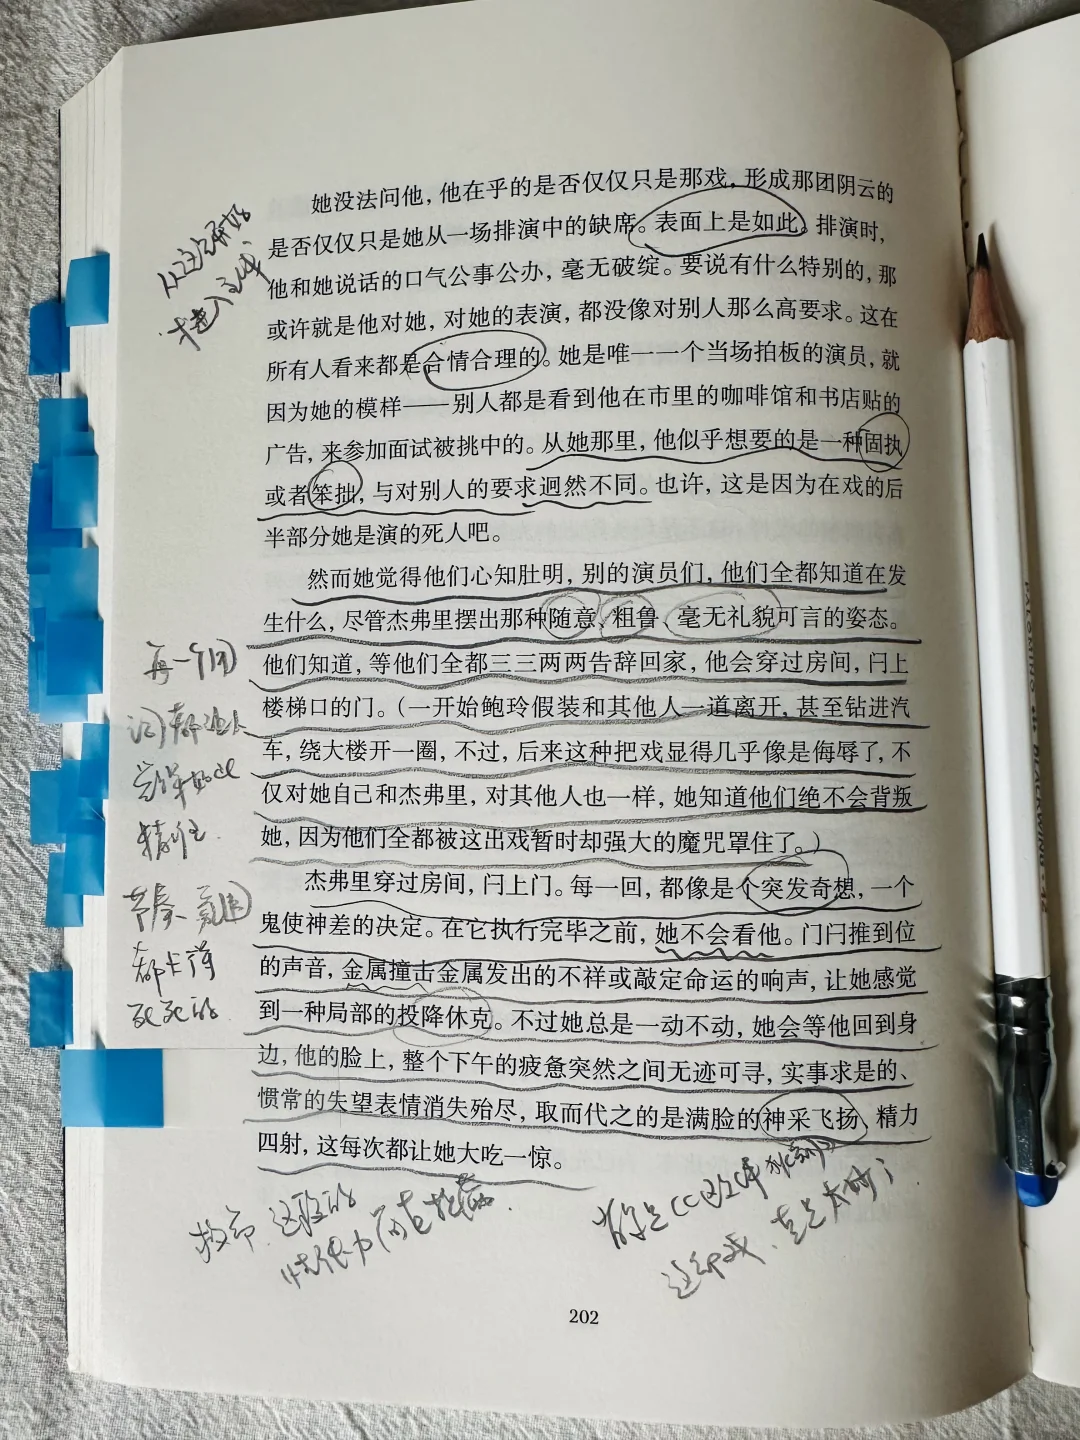 她没法问他，他在乎的是否仅仅只是那戏，形成那团阴云的
是否仅仅只是她从一场排演中的缺席。表面上是如此。排演时，
他和她说话的口气公事公办，毫无破绽。要说有什么特别的，那
或许就是他对她，对她的表演，都没像对别人那么高要求。这在
所有人看来都是合情合理的。她是唯一一个当场拍板的演员，就
因为她的模样——别人都是看到他在市里的咖啡馆和书店贴的
广告，来参加面试被挑中的。从她那里，他似乎想要的是一种固执
或者笨拙，与对别人的要求迥然不同。也许，这是因为在戏的后
半部分她是演的死人吧。
然而她觉得他们心知肚明，别的演员们，他们全都知道在发
生什么，尽管杰弗里摆出那种随意、粗鲁、毫无礼貌可言的姿态。
他们知道，等他们全都三三两两告辞回家，他会穿过房间，闩上
楼梯口的门。（一开始鲍玲假装和其他人一道离开，甚至钻进汽
车，绕大楼开一圈，不过，后来这种把戏显得几乎像是侮辱了，不
仅对她自己和杰弗里，对其他人也一样，她知道他们绝不会背叛
她，因为他们全都被这出戏暂时却强大的魔咒罩住了。）
杰弗里穿过房间，闩上门。每一回，都像是个突发奇想，一个
鬼使神差的决定。在它执行完毕之前，她不会看他。门闩推到位
的声音，金属撞击金属发出的不祥或敲定命运的响声，让她感觉
到一种局部的投降休克。不过她总是一动不动，她会等他回到身
边，他的脸上，整个下午的疲惫突然之间无迹可寻，实事求是的、
惯常的失望表情消失殆尽，取而代之的是满脸的神采飞扬，精力
四射，这每次都让她大吃一惊。
从这里开始
才进入主体
每一个词
词都让人
觉得如此
精准
节奏、氛围
都卡得
死死的
202
PALOMINO BLACKWING